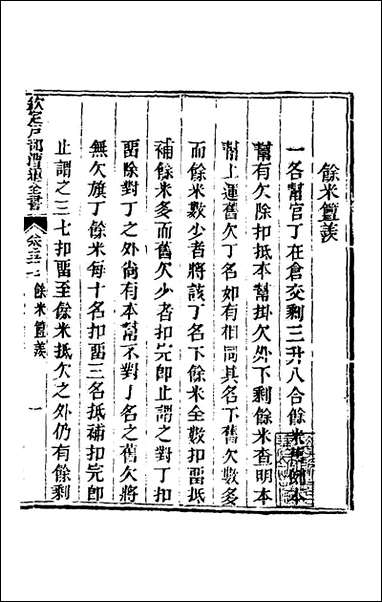 餘米籃羨
一各幫官丁在倉交剩三升八合餘米舊例本
幫有欠除扣抵本幫掛欠外下剩餘米查明本
幫上運舊欠丁名如有相同其名下舊欠數多
而餘米數少者將該丁名下餘米全數扣畱抵
補餘米多而舊欠少者扣完卽止謂之對丁扣
畱除對丁之外尙有本幫不對丁名之舊欠將
無欠旗丁餘米每十名扣畱三名抵補扣完卽
止謂之三七扣畱至餘米抵欠之外仍有餘剩
欽定戶部漕運全書
餘米籃羨
一